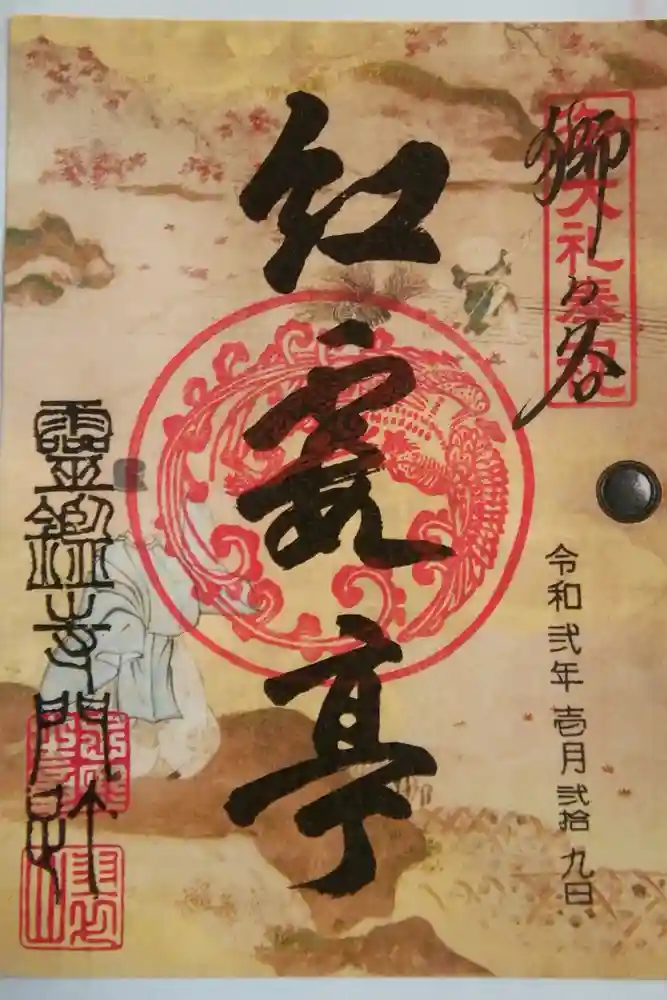 獅ヶ谷
大礼奉祝
紅霞亭
令和弐年壱月弐拾九日
靈鑑寺門跡